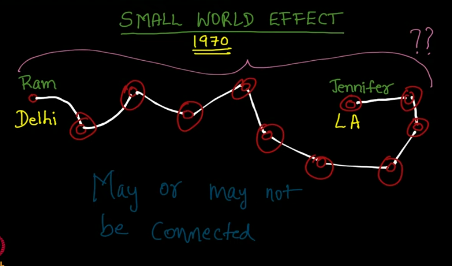 SMALL WORLD EFFECT
1970
??
Ram
Jennifer
Delhi
LA
May or may not
be connected